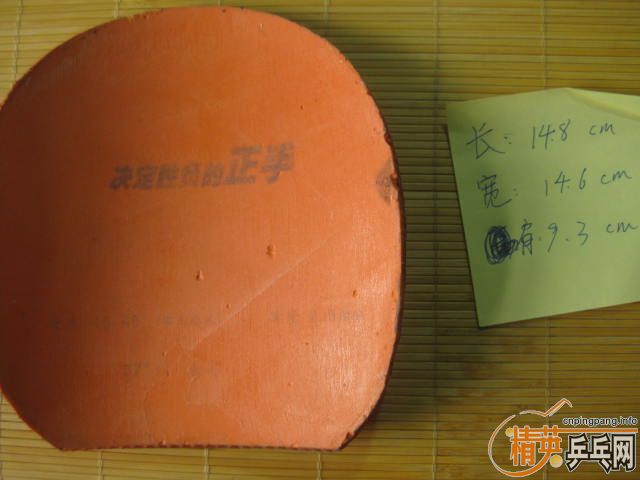 决定胜负的正手
长: 14.8 cm
宽: 14.6 cm
肩. 9.3 cm
cnpingpang.info
精英乒乓网